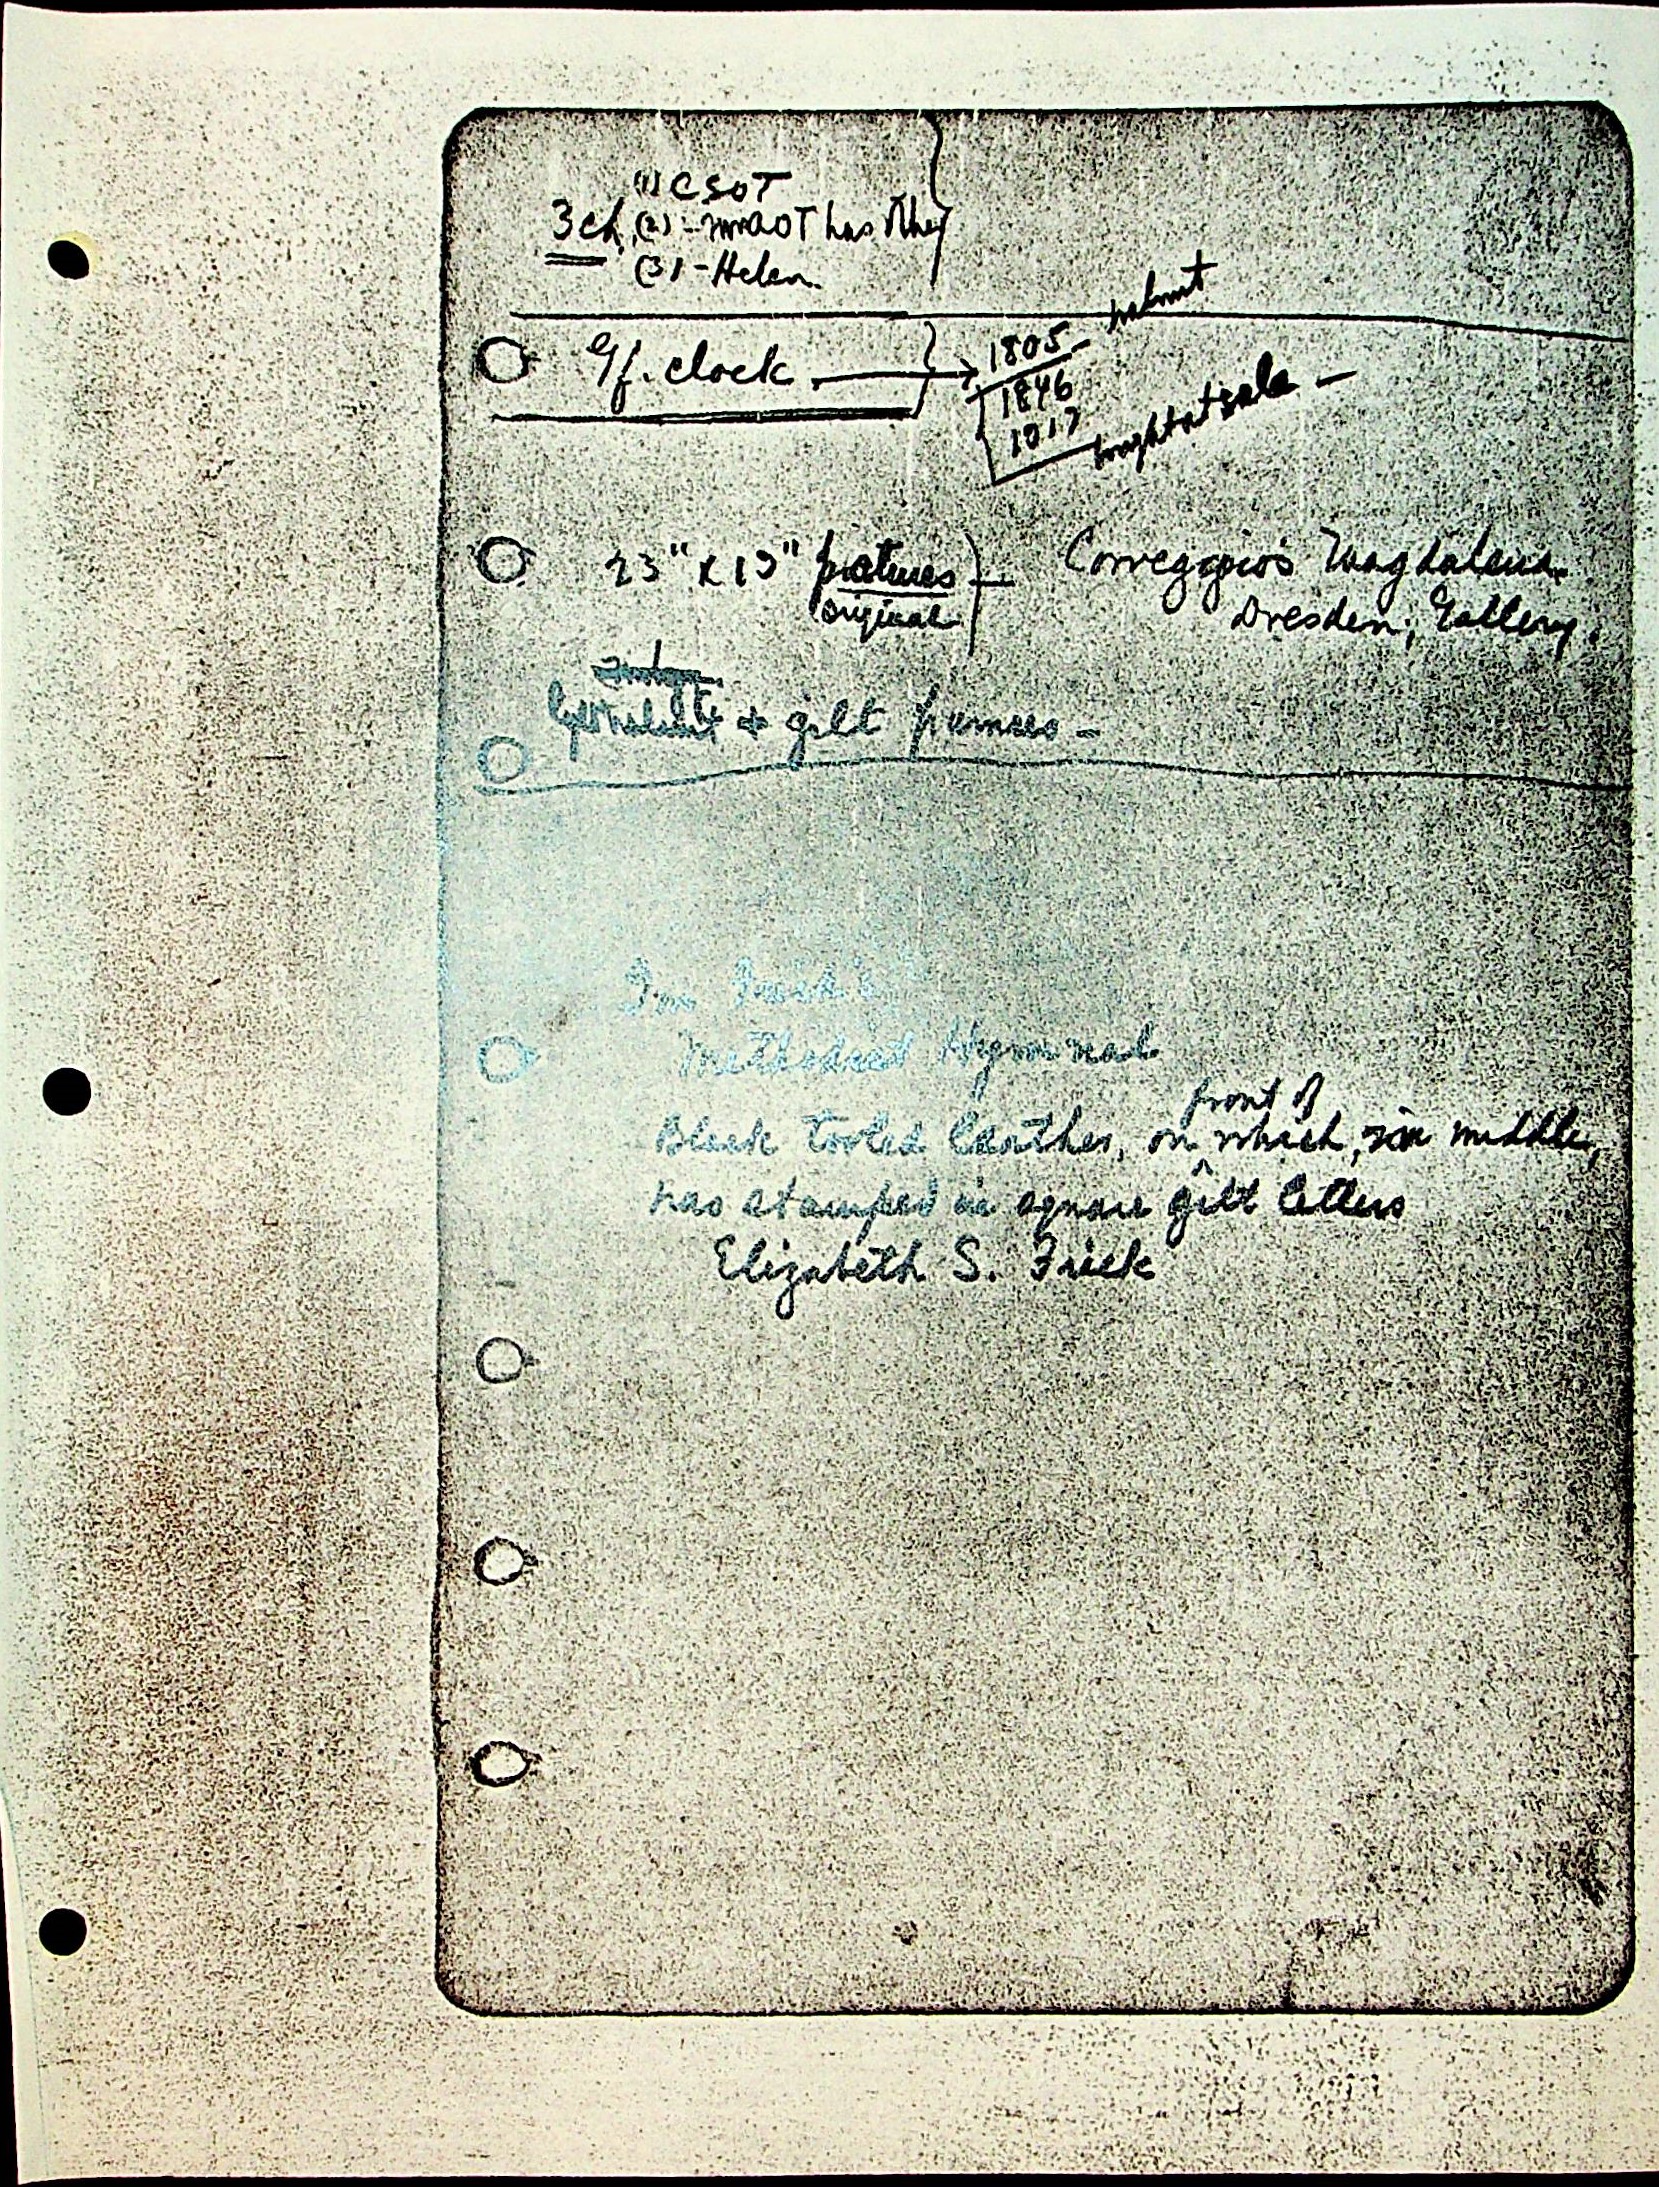 (1) CSOT
3 ch. (2) - MMOT has other
(3) - Helen.
G/f. clock
1805 - walnut
1846
1917
bought at sale -
23" x 19" pictures
original
Correggio's Magdalena.
Dresden, Gallery.
& gilt frames -
Methodist Hymnal
front of
Black tooled leather, on which, in middle,
has stamped in square gilt letters
Elizabeth S. Frick